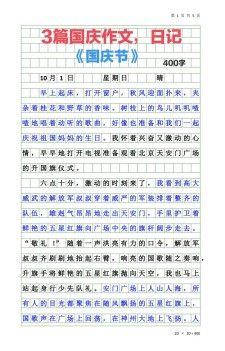 第 1 页 共 6 页
3篇国庆作文，日记
《国庆节》
400字
10 月 1 日 星期日 晴
早上起床，打开窗户，秋风迎面扑来，夹
杂着桂花和野草的香味。树枝上的鸟儿叽叽喳
喳地唱着动听的歌曲，好像也准备和我们一起
庆祝祖国妈妈的生日。我怀着兴奋又激动的心
情，早早地打开电视准备观看北京天安门广场
的升国旗仪式。
六点十分，激动的时刻来了，我看到高大
威武的解放军叔叔穿着威严的军装排着整齐的
队伍，雄赳气昂昂地走出天安门，手里护卫着
鲜艳的五星红旗向广场中央的旗杆阔步走去。
“敬礼！”随着一声洪亮有力的口令，解放军
叔叔齐刷刷地抬起右臂，响亮的国歌随之奏响，
升旗手将鲜艳的五星红旗抛向天空，我也马上
站起身行少先队礼。安门广场上人山人海，所
有人的目光都聚焦在随风飘扬的五星红旗上，
国歌声在广场上回荡，在神州大地上飞扬。人
20 × 20 = 400